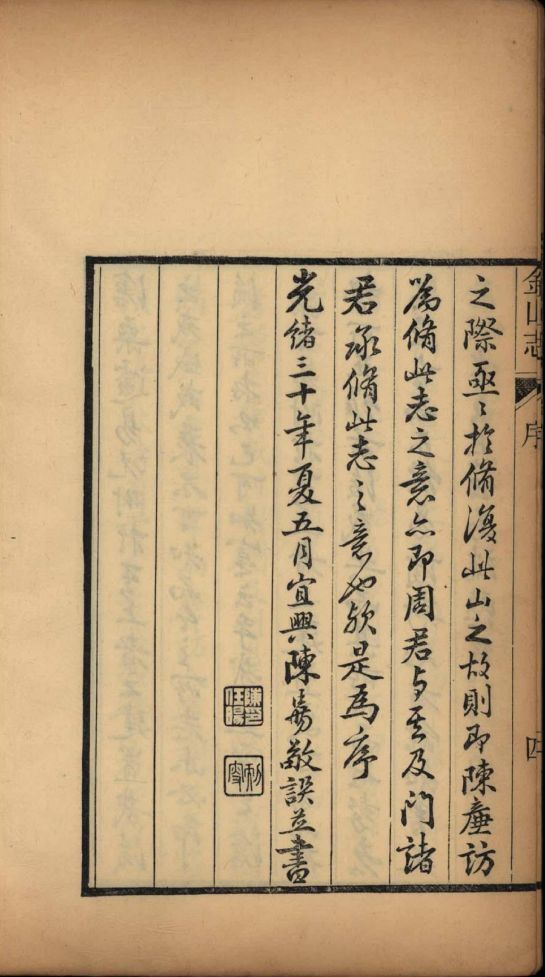 金山志
序
四
之際亟亟於脩復此山之故則即陳廉訪
爲脩此志之意亦即周君与其及門諸
君承脩此志之意也歟是爲序
光緒三十年夏五月宜興陳任暘敬譔並書